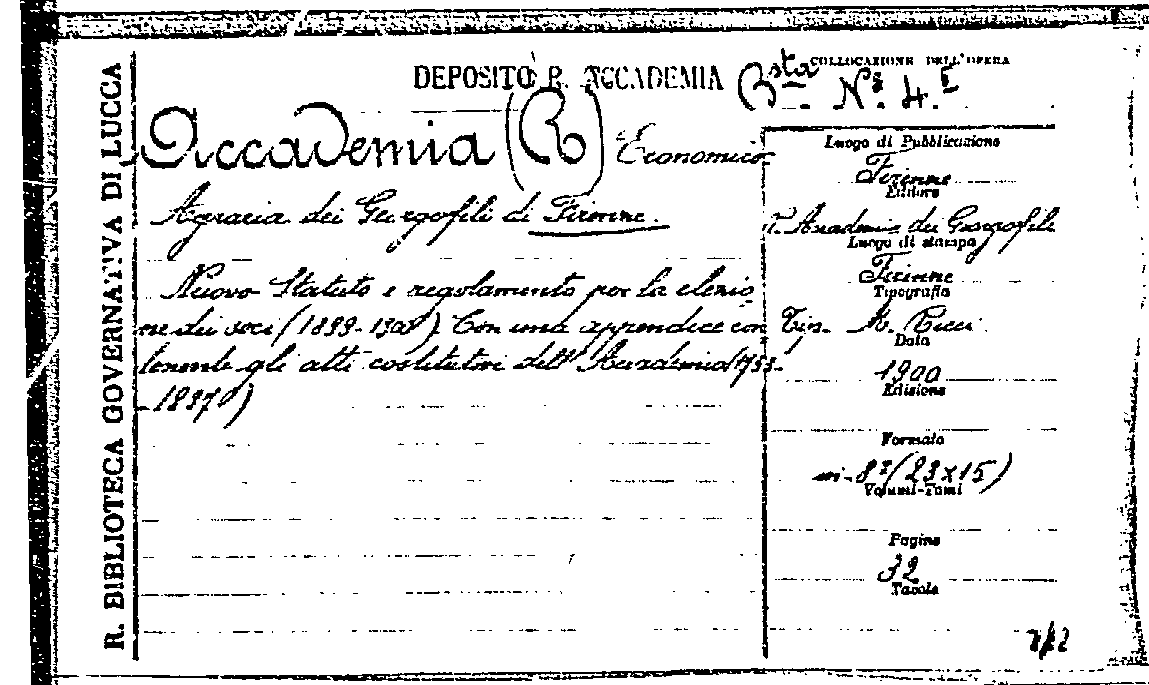 R. BIBLIOTECA GOVERNATIVA DI LUCCA
DEPOSITO R. ACCADEMIA
COLLOCAZIONE DELL'OPERA
Bsta. N.º 4.
Accademia (R) Economico-
Agraria dei Georgofili di Firenze.
Nuovo Statuto e regolamento per la elezio
ne dei soci (1899-1900). Con una appendice con
tenente gli atti costitutivi dell'Accademia (1753-
-1897)
Luogo di Pubblicazione
Firenze
Editore
R. Accademia dei Georgofili
Luogo di stampa
Firenze
Tipografia
Tip. M. Ricci
Data
1900
Edizione
Formato
in-8º (23x15)
Volumi-Tomi
Pagine
32
Tavole